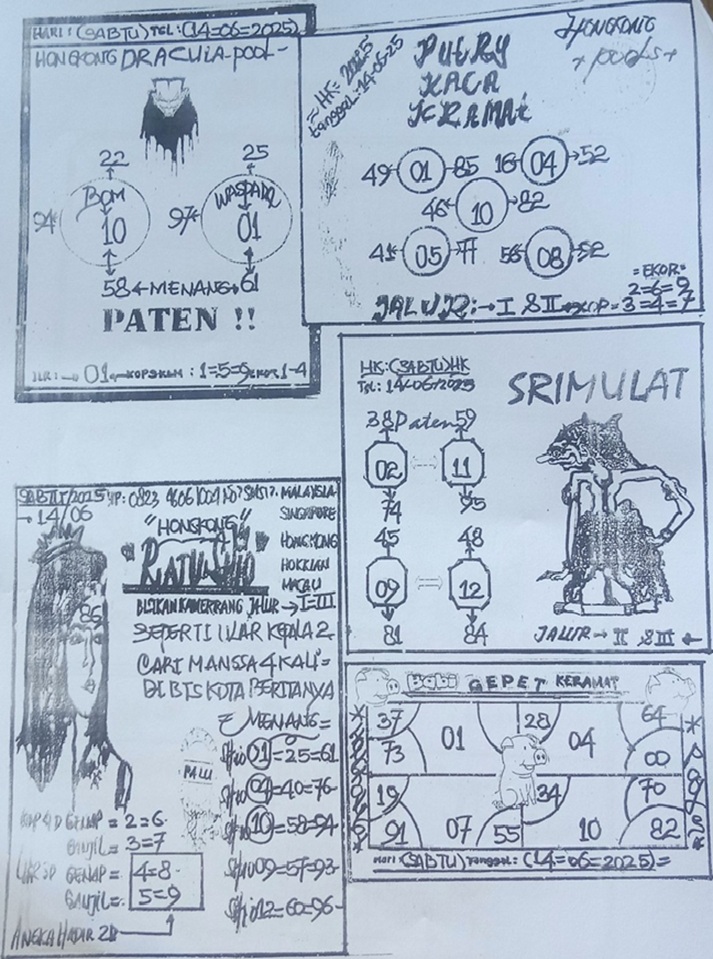 HARI : (SABTU) TGL : (14=06=2025)
HONGKONG DRACULA-POOL-
22 25
BOM WASPADA
94 10 97 01
58 MENANG 61
PATEN !!
JLR : 01 KOP : 1=5=9 EKOR 1-4
HONGKONG
POOLS
= HK = 2025
tanggal : 14-06-25
PUTRY
KACA
KERAMAT
49 01 85 16 04 52
46 10 82
41 05 77 56 08 92
= EKOR =
2=6=9
JALUR : I & II KOP = 3=4=7
HK : (SABTU) HK
TGL : 14-06-2025
SRIMULAT
38 Paten 59
02 11
74 95
45 48
09 12
81 84
JALUR II & III
SABTU/2025 HP : 0823
14/06
MALAYSIA
SINGAPORE
HONGKONG
HOKKIAN
MACAU
"HONGKONG"
RATU SHIO
JALUR I-III
86
SEPERTI ULAR KEPALA 2
CARI MANGSA 4 KALI
DI BIS KOTA BERITANYA
= MENANG =
SHIO 01 = 25 = 61
SHIO 04 = 40 = 76
SHIO 10 = 58 = 94
SHIO 09 = 57 = 93
SHIO 12 = 60 = 96
PALU
KOP 4D GENAP = 2 = 6
GANJIL = 3 = 7
GENAP = 4=8
GANJIL = 5=9
ANGKA HADIR 2D
Babi GEPET KERAMAT
37 01 28 04 64
73 00
19 34 70
91 07 55 10 82
Hari (SABTU) Tanggal : (14=06=2025) =